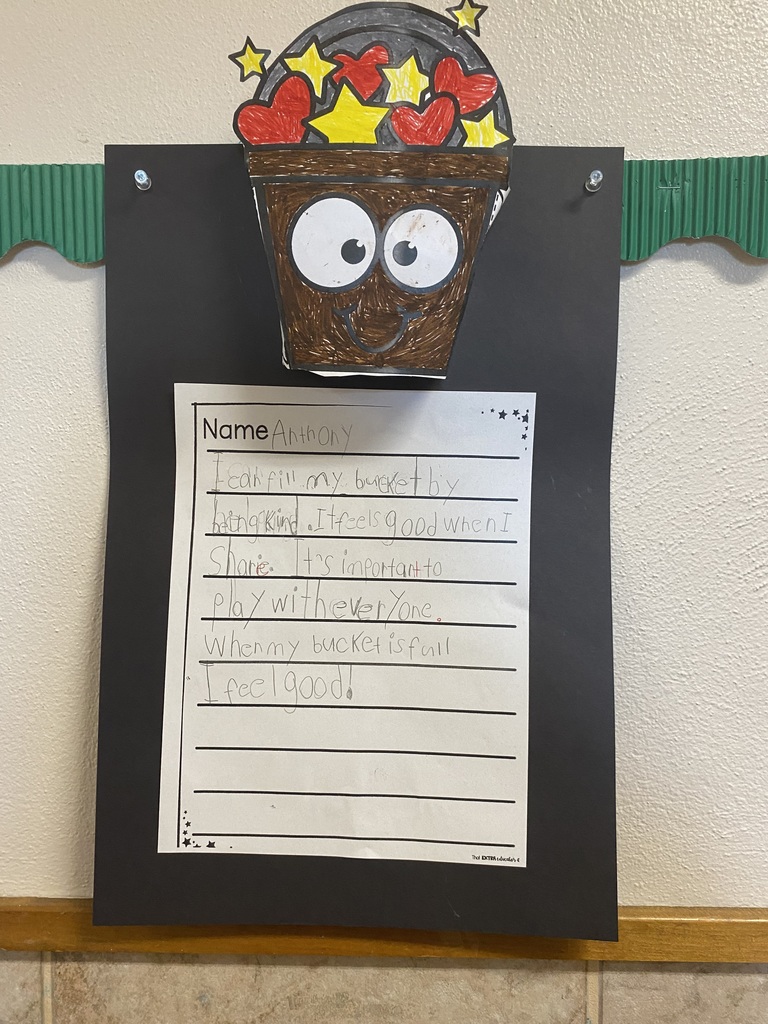 Name Anthony
I can fill my bucket by
being kind. It feels good when I
Share. It's important to
play with everyone.
When my bucket is full
I feel good!
That EXTRA educator